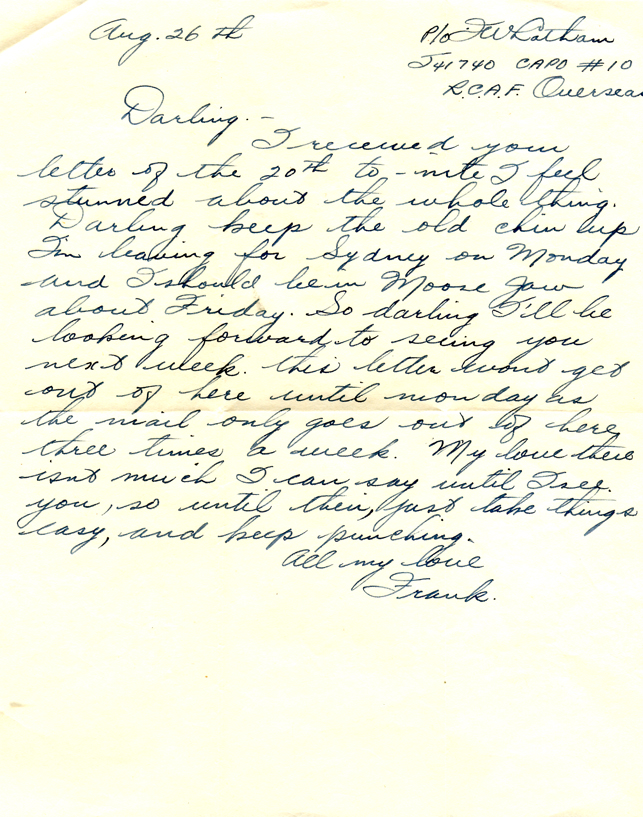 Aug. 26 th
P/o F W Latham
J41740 CAPO #10
R.C.A.F. Overseas
Darling. -
I received your
letter of the 20th to-nite I feel
stunned about the whole thing.
Darling keep the old chin up
I'm leaving for Sydney on Monday
and I should be in Moose Jaw
about Friday. So darling I'll be
looking forward to seeing you
next week. this letter wont get
out of here until monday as
the mail only goes out of here
three times a week. My love there
isnt much I can say until I see
you, so until then, just take things
easy, and keep punching.
All my love
Frank.